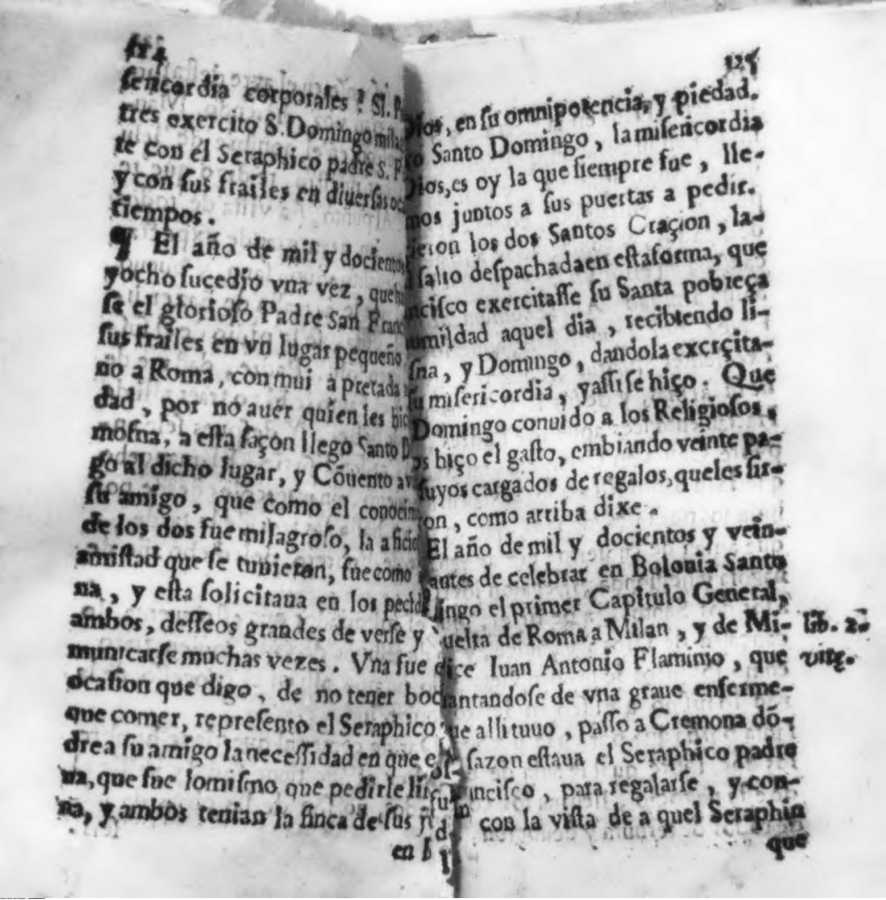 124
sericordia corporales? Si. P
tres exercito S. Domingo mila
te con el Seraphico padre S. F
y con sus frailes en diuersas oca
tiempos.
¶ El año de mil y docientos
yocho sucedio vna vez, que
se el glorioso Padre San Franc
sus frailes en vn lugar pequeño
no a Roma, con mui apretada
dad, por no auer quien les hic
mosna, a esta saçon llego Santo D
go al dicho lugar, y Cõuento a v
su amigo, que como el conocim
de los dos fue milagroso, la afici
amistad que se tunieron, fue como
na, y esta solicitaua en los pech
ambos, desseos grandes de verse y
municarse muchas vezes. Vna fue
ocasion que digo, de no tener boc
que comer, represento el Seraphico
dre a su amigo la necessidad en que e
ua, que fue lo mismo que pedirle li
na, y ambos tenian la finca de sus
en
125
Dios, en su omnipotencia, y piedad.
co Santo Domingo, la misericordia
Dios, es oy la que siempre fue, lle-
mos juntos a sus puertas a pedir.
ieron los dos Santos Oraçion, la-
salio despachada en esta forma, que
ncisco exercitasse su Santa pobreça
umildad aquel dia, recibiendo li-
sna, y Domingo, dandola exercita-
su misericordia, y assi se hiço. Que
Domingo conuido a los Religiosos,
os hiço el gasto, embiando veinte pa-
suyos cargados de regalos, que les sir-
ron, como arriba dixe.
El año de mil y docientos y vein-
antes de celebrar en Bolonia Santo
ingo el primer Capitulo General,
uelta de Roma a Milan, y de Mi- lib. 2.
dice Iuan Antonio Flaminio, que vitę.
antandose de vna graue enferme-
que alli tuuo, passo a Cremona dõ-
sazon estaua el Seraphico padre
ncisco, para regalarse, y con-
con la vista de a quel Seraphin
que